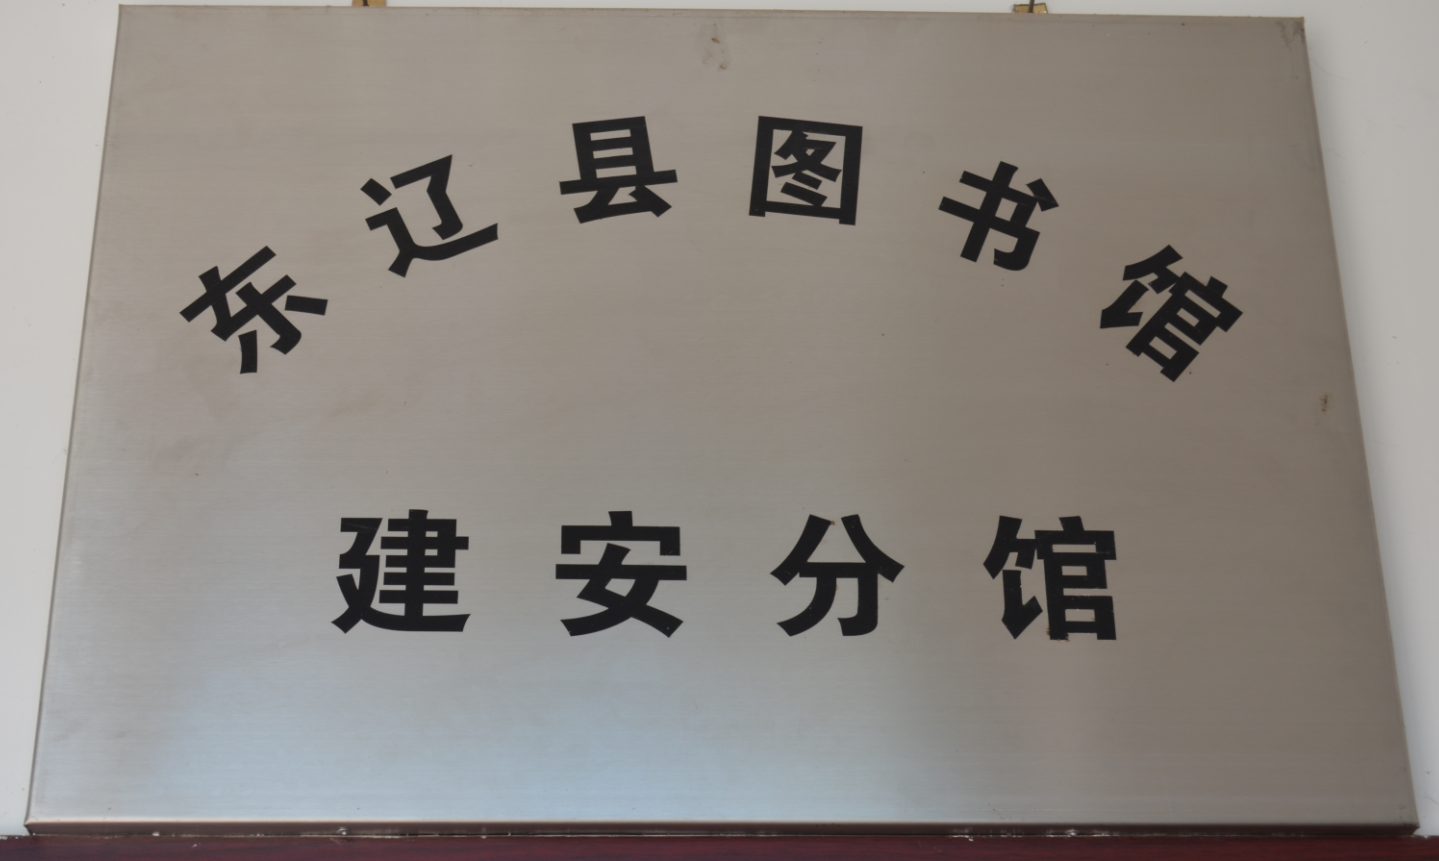 东辽县图书馆
建安分馆